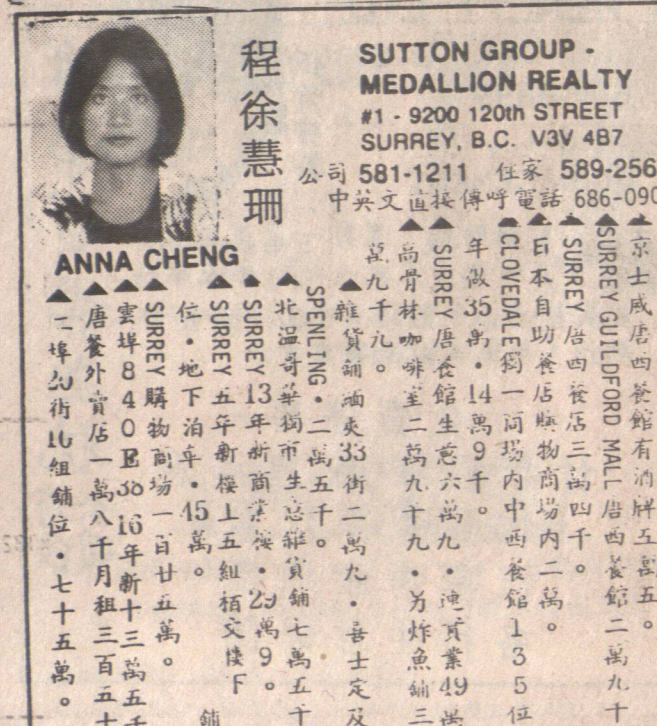 程徐慧珊
SUTTON GROUP -
MEDALLION REALTY
#1 - 9200 120th STREET
SURREY, B.C. V3V 4B7
公司 581-1211 住家 589-256
中英文直接傳呼電話 686-090
ANNA CHENG
▲京士威唐西餐館有酒牌五萬五。
▲SURREY GUILDFORD MALL 唐西餐館二萬九千
▲SURREY 唐西餐店三萬四千。
▲日本自助餐店購物商場內二萬。
▲CLOVEDALE獨一商場內中西餐館135位
年做35萬・14萬9千。
▲SURREY唐餐館生意六萬九・連賣業49萬
▲高骨林咖啡室二萬九千九・另炸魚鋪三
萬九千元。
▲雜貨鋪緬夾33街二萬九・喜士定及
SPENLING・二萬五千。
▲北溫哥華獨市生意雜貨鋪七萬五千
▲SURREY13年新商業樓・29萬9。
▲SURREY五年新樓上五組栢文樓下鋪
位・地下泊車・45萬。
▲SURREY購物商場一百廿五萬。
▲雲埠840呎38 16年新十三萬五千
▲唐餐外賣店一萬八千月租三百五十
▲二埠20街16組鋪位・七十五萬。